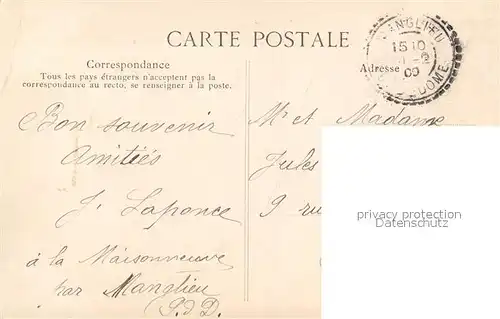 CARTE POSTALE
Correspondance
Tous les pays étrangers n'acceptent pas la
correspondance au recto, se renseigner à la poste.
Adresse
MANGLIEU
15 10
-2
09
DOME
Bon souvenir
Amitiés
J. Laponce
à la Maisonneuve
par Manglieu
P. d. D.
Mr et Madame
Jules
9 ru
privacy protection
Datenschutz